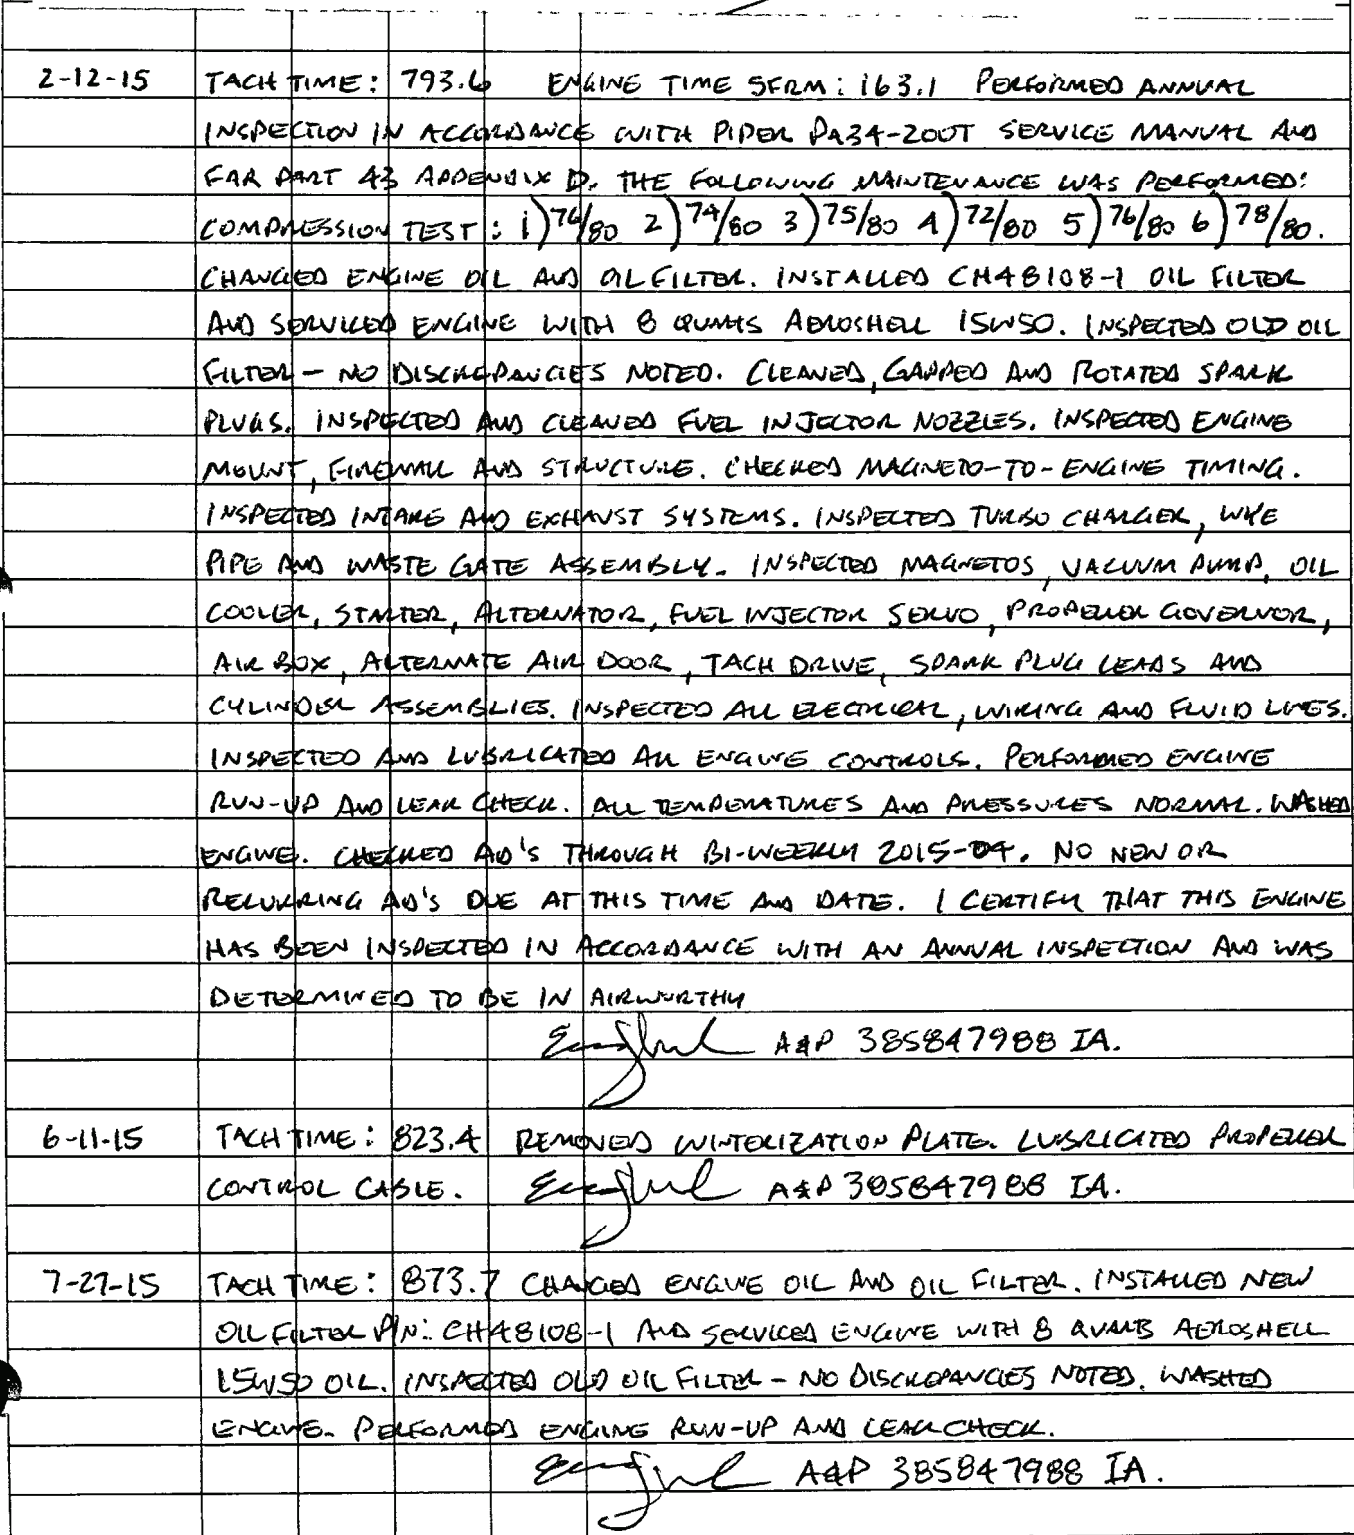 2-12-15 TACH TIME: 793.6 ENGINE TIME SFRM: 163.1 PERFORMED ANNUAL
INSPECTION IN ACCORDANCE WITH PIPER PA34-200T SERVICE MANUAL AND
FAR PART 43 APPENDIX D. THE FOLLOWING MAINTENANCE WAS PERFORMED:
COMPRESSION TEST: 1) 76/80 2) 74/80 3) 75/80 4) 72/80 5) 76/80 6) 78/80.
CHANGED ENGINE OIL AND OIL FILTER. INSTALLED CH48108-1 OIL FILTER
AND SERVICED ENGINE WITH 8 QUARTS AEROSHELL 15W50. INSPECTED OLD OIL
FILTER - NO DISCREPANCIES NOTED. CLEANED, GAPPED AND ROTATED SPARK
PLUGS. INSPECTED AND CLEANED FUEL INJECTOR NOZZLES. INSPECTED ENGINE
MOUNT, FIREWALL AND STRUCTURE. CHECKED MAGNETO-TO-ENGINE TIMING.
INSPECTED INTAKE AND EXHAUST SYSTEMS. INSPECTED TURBO CHARGER, WYE
PIPE AND WASTE GATE ASSEMBLY. INSPECTED MAGNETOS, VACUUM PUMP, OIL
COOLER, STARTER, ALTERNATOR, FUEL INJECTOR SERVO, PROPELLER GOVERNOR,
AIR BOX, ALTERNATE AIR DOOR, TACH DRIVE, SPARK PLUG LEADS AND
CYLINDER ASSEMBLIES. INSPECTED ALL ELECTRICAL, WIRING AND FLUID LINES.
INSPECTED AND LUBRICATED ALL ENGINE CONTROLS. PERFORMED ENGINE
RUN-UP AND LEAK CHECK. ALL TEMPERATURES AND PRESSURES NORMAL. WASHED
ENGINE. CHECKED AD'S THROUGH BI-WEEKLY 2015-04. NO NEW OR
RECURRING AD'S DUE AT THIS TIME AND DATE. I CERTIFY THAT THIS ENGINE
HAS BEEN INSPECTED IN ACCORDANCE WITH AN ANNUAL INSPECTION AND WAS
DETERMINED TO BE IN AIRWORTHY
A&P 385847988 IA.
6-11-15 TACH TIME: 823.4 REMOVED WINTERIZATION PLATE. LUBRICATED PROPELLER
CONTROL CABLE. A&P 385847988 IA.
7-27-15 TACH TIME: 873.7 CHANGED ENGINE OIL AND OIL FILTER. INSTALLED NEW
OIL FILTER P/N: CH48108-1 AND SERVICED ENGINE WITH 8 QUARTS AEROSHELL
15W50 OIL. INSPECTED OLD OIL FILTER - NO DISCREPANCIES NOTED. WASHED
ENGINE. PERFORMED ENGINE RUN-UP AND LEAK CHECK.
A&P 385847988 IA.